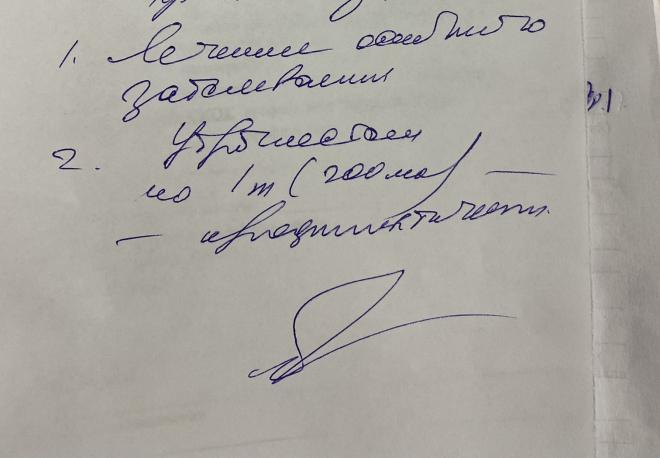 1. Лечение основного
заболевания
2.
по 1т (200мг) —
— профилактически.